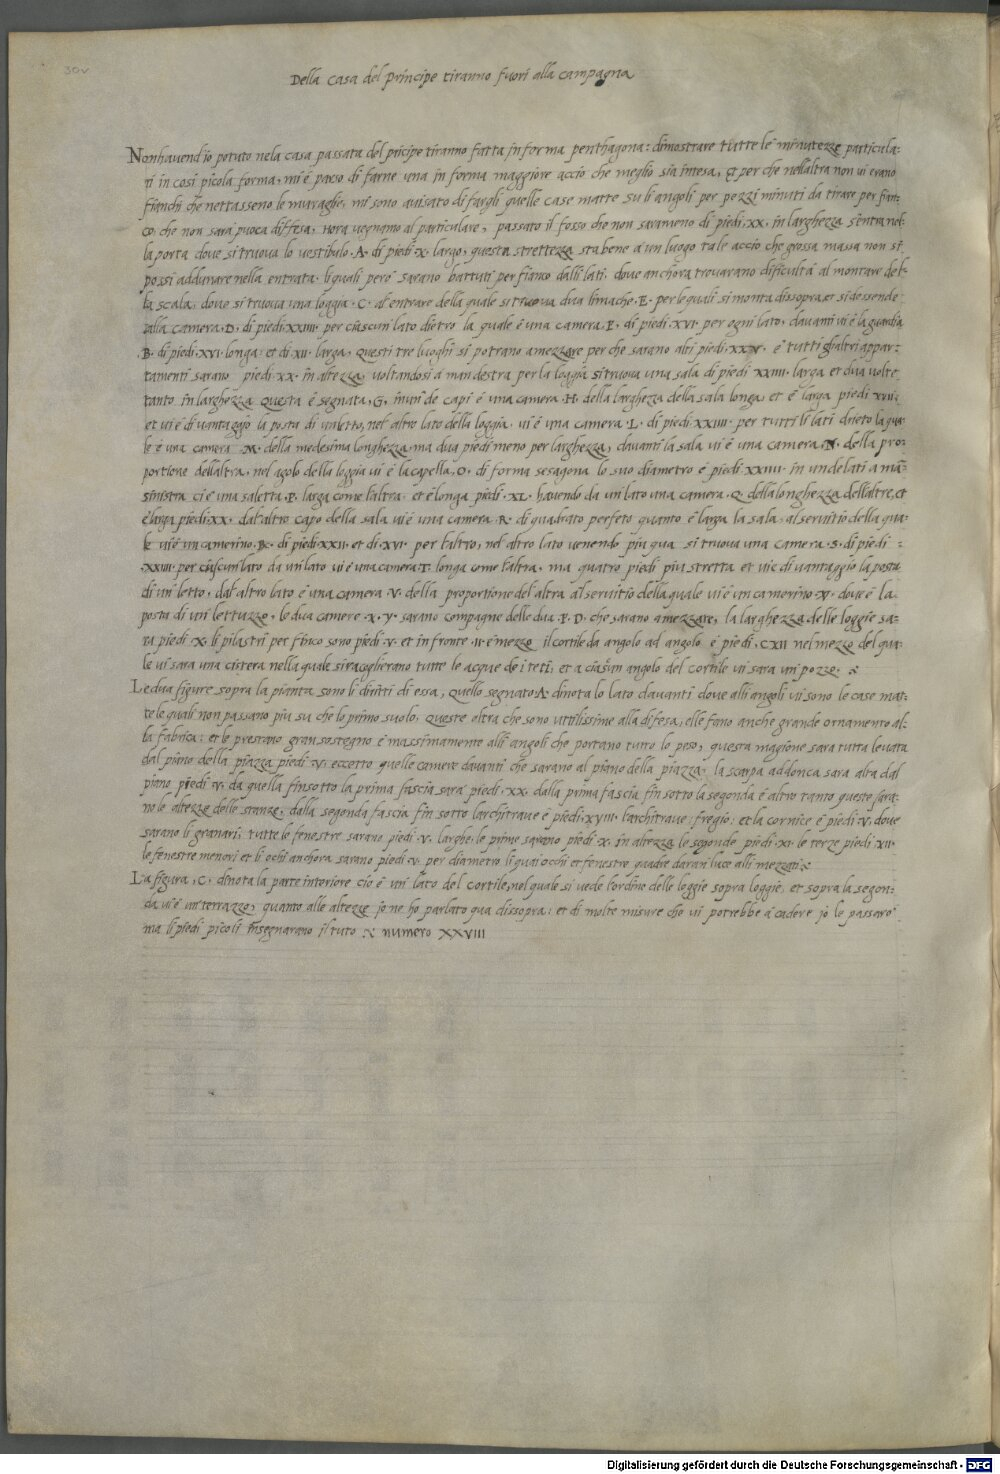 30v
Della casa del principe tiranno fuori alla campagna
Nonhauend'io potuto nela casa passata del pricipe tiranno fatta in forma penthagona: dimostrare tutte le minutezze particula-
ri in cosi picola forma, mi è parso di farne una in forma maggiore accio che meglio sia intesa, Et per che nell'altra non vi erano
fianchi che nettasseno le muraglie, mi sono auisato di fargli quelle case matte su li angoli per pezzi minuti da tirare per fian-
co, che non sara puoca diffesa, Hora vegnamo al particulare, passato il fosso che non sara meno di piedi .XX. in larghezza s'entra nel-
la porta doue si truoua lo vestibulo .A. di piedi .X. largo, questa strettezza sta bene a un luogo tale accio che grossa massa non si
possi addunare nella entrata. li quali pero sarano battuti per fianco dalli lati. doue anchora trouarano difficultà al montare del-
la scala, doue si truoua una loggia .C. al entrare della quale si truoua dua limache .E. per le quali si monta dissopra, et si dessende
alla camera .D. di piedi .XXIIII. per ciascun lato dietro la quale è una camera .F. di piedi .XVI. per ogni lato, dauanti vi è la guardia
.B. di piedi .XVI. longa: et di .XII. larga, questi tre luoghi si potrano amezzare per che sarano alti piedi .XXV. è tutti gl'altri appar-
tamenti sarano piedi .XX. in altezza, voltandosi a man destra per la loggia si truoua una sala di piedi .XXIIII. larga et dua volte
tanto in larghezza questa è segnata, G, in un de capi è una camera .H. della larghezza della sala longa et è larga piedi .XVII.
et vi è di vantaggio la posta di un letto, nel altro lato della loggia vi è una camera .L. di piedi .XXIIII. per tutti li lati drieto la qua-
le è una camera .M. della medesima longhezza, ma dua piedi meno per larghezza, dauanti la sala vi è una camera .N. della pro-
portione dell'altra, nel agolo della loggia vi è la capella, O. di forma sesagona lo suo diametro è piedi .XXIIII. in un de lati a mā
sinistra ci è una saletta .P. larga come l'altra et è longa piedi .XL. hauendo da un lato una camera .Q. della longhezza dell'altre, et
è larga piedi .XX. dal'altro capo della sala vi è una camera .R. di quadrato perfeto quanto è larga la sala, al seruitio della qua-
le vi è un camerino .K. di piedi .XXII. et di .XVI. per l'altro, nel altro lato venendo piu qua si truoua una camera .S. di piedi
.XXIIII. per ciascun lato da un lato vi è una camera .T. longa come l'altra. ma quatro piedi piu stretta et vi è di vantaggio la posta
di un letto, dal'altro lato è una camera .V. della proportione del'altra al seruitio della quale vi è un camerino doue è la
posta di un lettuzzo, le dua camere .X.Y. sarano compagne delle dua .F.D. che sarano amezzare, la larghezza delle loggie sa-
ra piedi .X. li pilastri per fianco sono piedi .V. et in fronte .II. è mezzo il cortile da angolo ad angolo è piedi, CXII nel mezzo del qua-
le vi sara una cisterna nella quale si racoglierano tutte le acque de i teti, et a ciascun angolo del cortile vi sara un pozzo.
Le dua figure sopra la pianta sono li diritti di essa, Quello segnato A. dinota lo lato dauanti doue alli angoli vi sono le case mat-
te le quali non passano piu su che lo primo suolo, queste oltra che sono uttilissime alla difesa, elle fano anche grande ornamento al-
la fabrica: et le prestano gran sostegno è massimamente alli angoli che portano tutto lo peso, questa magione sara tutta leuata
dal piano della piazza piedi .V. eccetto quelle camere dauanti che sarano al piano della piazza, la scarpa addonca sara alta dal
piano piedi .V. da quella fin sotto la prima fascia sara piedi .XX. dalla prima fascia fin sotto la segonda è altro tanto queste sara-
no le altezze delle stanze, dalla segonda fascia fin sotto l'architraue è piedi .XVIII. l'architraue: fregio: et la cornice è piedi .V. doue
sarano li granari, tutte le fenestre sarano piedi .V. larghe, le prime sarano piedi .X. in altezza le segonde piedi .XI. le terze piedi .XII.
le fenestre menori et li ochi anchora sarano piedi .V. per diametro li quai occhi et fenestre quadre daran luce alli mezzati.
La figura, C, dinota la parte interiore cio è un lato del cortile, nel quale si vede l'ordine delle loggie sopra loggie, et sopra la segon-
da vi è un terrazzo, quanto alle altezze io ne ho parlato qua dissopra: et di molte misure che vi potrebbe acadere io le passarò
ma li piedi picoli insegnarano il tuto numero XXVIII
Digitalisierung gefördert durch die Deutsche Forschungsgemeinschaft - DFG